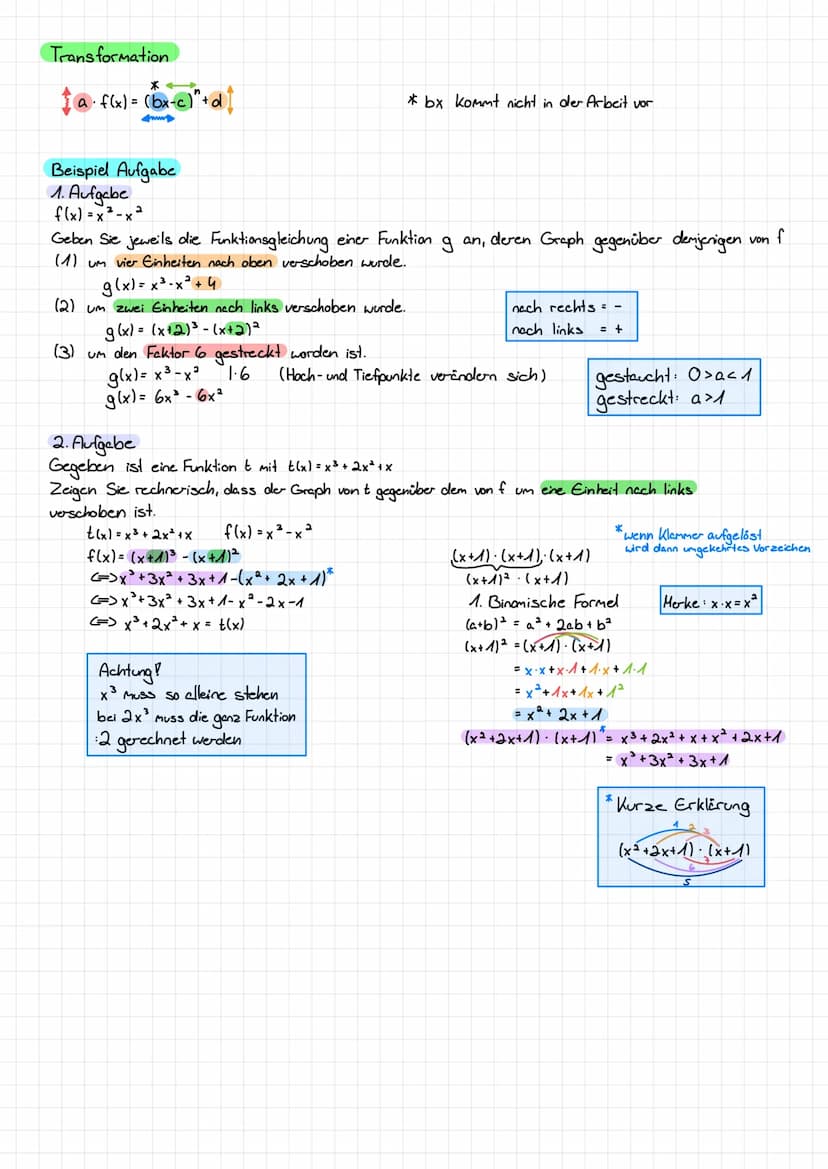 Transformation
a · f(x) = (bx-c)ⁿ + d
*
* bx kommt nicht in der Arbeit vor
Beispiel Aufgabe
1. Aufgabe
f(x) = x³ - x²
Geben Sie jeweils die Funktionsgleichung einer Funktion g an, deren Graph gegenüber demjenigen von f
(1) um vier Einheiten nach oben verschoben wurde.
g(x) = x³ - x² + 4
(2) um zwei Einheiten nach links verschoben wurde.
g(x) = (x+2)³ - (x+2)²
nach rechts = -
nach links = +
(3) um den Faktor 6 gestreckt worden ist.
g(x) = x³ - x² | · 6 (Hoch- und Tiefpunkte verändern sich)
g(x) = 6x³ - 6x²
gestaucht: 0>a<1
gestreckt: a>1
2. Aufgabe
Gegeben ist eine Funktion t mit t(x) = x³ + 2x² + x
Zeigen Sie rechnerisch, dass der Graph von t gegenüber dem von f um eine Einheit nach links
verschoben ist.
t(x) = x³ + 2x² + x f(x) = x³ - x²
f(x) = (x+1)³ - (x+1)²
<=> x³ + 3x² + 3x + 1 - (x² + 2x + 1)*
<=> x³ + 3x² + 3x + 1 - x² - 2x - 1
<=> x³ + 2x² + x = t(x)
* wenn Klammer aufgelöst
wird dann umgekehrtes Vorzeichen
Achtung!
x³ muss so alleine stehen
bei 2x³ muss die ganz Funktion
:2 gerechnet werden
(x+1) · (x+1) · (x+1)
(x+1)² · (x+1)
1. Binomische Formel
Merke: x·x = x²
(a+b)² = a² + 2ab + b²
(x+1)² = (x+1) · (x+1)
= x·x + x·1 + 1·x + 1·1
= x² + 1x + 1x + 1²
= x² + 2x + 1
(x² + 2x + 1) · (x+1)* = x³ + 2x² + x + x² + 2x + 1
= x³ + 3x² + 3x + 1
* Kurze Erklärung
1 2 3
(x² + 2x + 1) · (x+1)
3
6
5